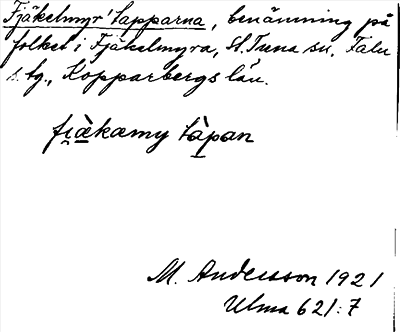 Fjäkelmyr'lapparna, benämning på
folket i Fjäkelmyra, St. Tuna sn, Falu
s. tg., Kopparbergs län.
fi̯æ̀kæmy làpan
M. Andersson 1921
Ulma 621:7